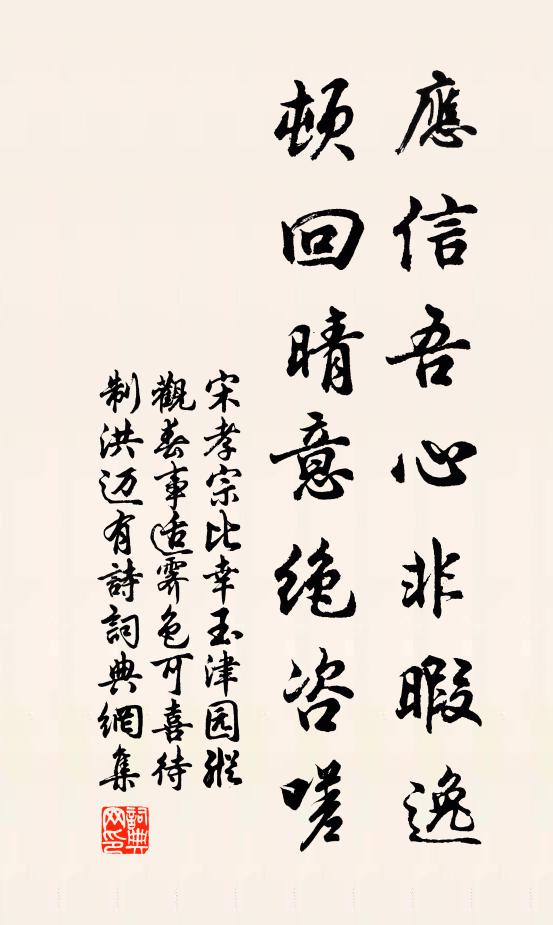 應信吾心非暇逸
頓回晴意絶咨嗟
宋孝宗比幸玉津园縱
觀春事适霽色可喜待
制洪迈有詩詞典網集
詞典网印